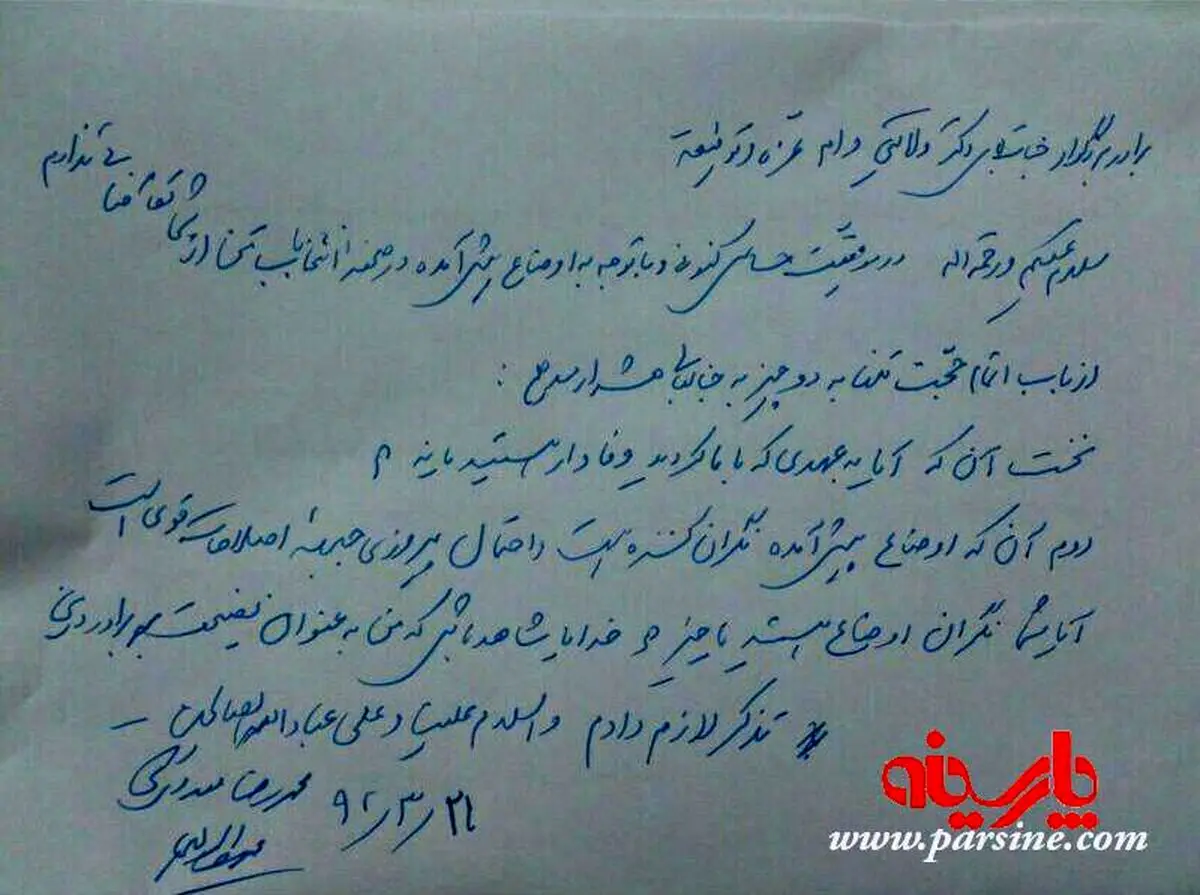 برادر بزرگوار جناب آقای دکتر ولایتی دام عزه و توفیقه
سلام علیکم و رحمة اله در موقعیت حساس کنونی و با توجه به اوضاع پیش آمده در صحنه انتخابات تنها از شما تقاضایی ندارم
از باب اتمام حجت تنها به دو چیز به جنابعالی هشدار میدهم :
نخست آن که آیا به عهدی که با ما کردید وفادار هستید یا نه ؟
دوم آن که اوضاع پیش آمده نگران کننده است و احتمال پیروزی جبهه اصلاحات قوی است
آیا شما نگران اوضاع هستید یا خیر ؟ خدایا شاهد باش که من به عنوان نصیحت به برادر دینی
تذکر لازم دادم والسلام علینا و علی عباد الله الصالحین
محمدرضا مهدوی کنی
۹۲/۳/۲۱
پارسینه
www.parsine.com